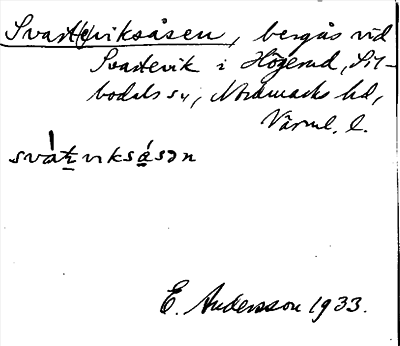 Svart(e)viksåsen, bergås vid
Svartevik i Högerud, Sil-
bodals sn, Nordmarks hd,
Värml. l.
svat̠viksåsən
E. Andersson 1933.